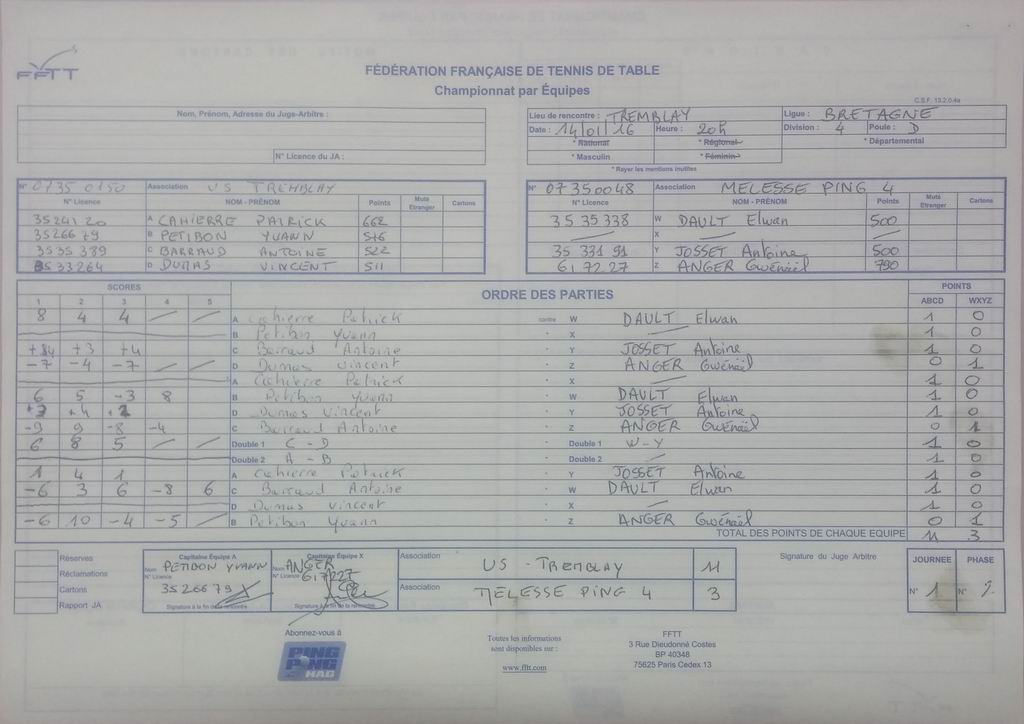 FFTT
FÉDÉRATION FRANÇAISE DE TENNIS DE TABLE
Championnat par Équipes
C.S.F. 13.2.0.4a
Nom, Prénom, Adresse du Juge-Arbitre :
N° Licence du JA :
Lieu de rencontre : TREMBLAY Ligue : BRETAGNE
Date : 14/01/16 Heure : 20h Division : 4 Poule : D
* National * Régional * Départemental
* Masculin * Féminin
* Rayer les mentions inutiles
N° 0735 0150 Association US TREMBLAY
N° Licence NOM - PRÉNOM Points Muté Etranger Cartons
35 241 20 A CAHIERRE PATRICK 662
35266 79 B PETIBON YVANN 516
3535 389 C BARRAUD ANTOINE 522
3533264 D DUMAS VINCENT 511
N° 07350048 Association MELESSE PING 4
N° Licence NOM - PRÉNOM Points Muté Etranger Cartons
35 35 338 W DAULT Elwan 500
X
35 331 91 Y JOSSET Antoine 500
61 72 27 Z ANGER Gwénaël 790
SCORES ORDRE DES PARTIES POINTS
1 2 3 4 5 ABCD WXYZ
8 4 4 A Cahierre Patrick contre W DAULT Elwan 1 0
B Petibon Yvann X 1 0
+3 +4 C Barraud Antoine Y JOSSET Antoine 1 0
-7 -4 -7 D Dumas Vincent Z ANGER Gwénaël 0 1
A Cahierre Patrick X 1 0
6 5 -3 8 B Petibon Yvann W DAULT Elwan 1 0
+4 D Dumas Vincent Y JOSSET Antoine 1 0
-9 9 -8 -4 C Barraud Antoine Z ANGER Gwénaël 0 1
6 8 5 Double 1 C - D Double 1 W - Y 1 0
Double 2 A - B Double 2 1 0
1 4 1 A Cahierre Patrick Y JOSSET Antoine 1 0
-6 3 6 -8 6 C Barraud Antoine W DAULT Elwan 1 0
D Dumas Vincent X 1 0
-6 10 -4 -5 B Petibon Yvann Z ANGER Gwénaël 0 1
TOTAL DES POINTS DE CHAQUE EQUIPE 11 3
Réserves
Réclamations
Cartons
Rapport JA
Capitaine Équipe A
Nom PETIBON YVANN
N° Licence
35 266 79
Signature à la fin de la rencontre
Capitaine Équipe X
Nom ANGER
N° Licence 617227
Signature à la fin de la rencontre
Association US - TREMBLAY 11
Association MELESSE PING 4 3
Signature du Juge Arbitre
JOURNEE PHASE
N° 1 N° 2
Abonnez-vous à
PING PONG MAG
Toutes les informations
sont disponibles sur :
www.fftt.com
FFTT
3 Rue Dieudonné Costes
BP 40348
75625 Paris Cedex 13